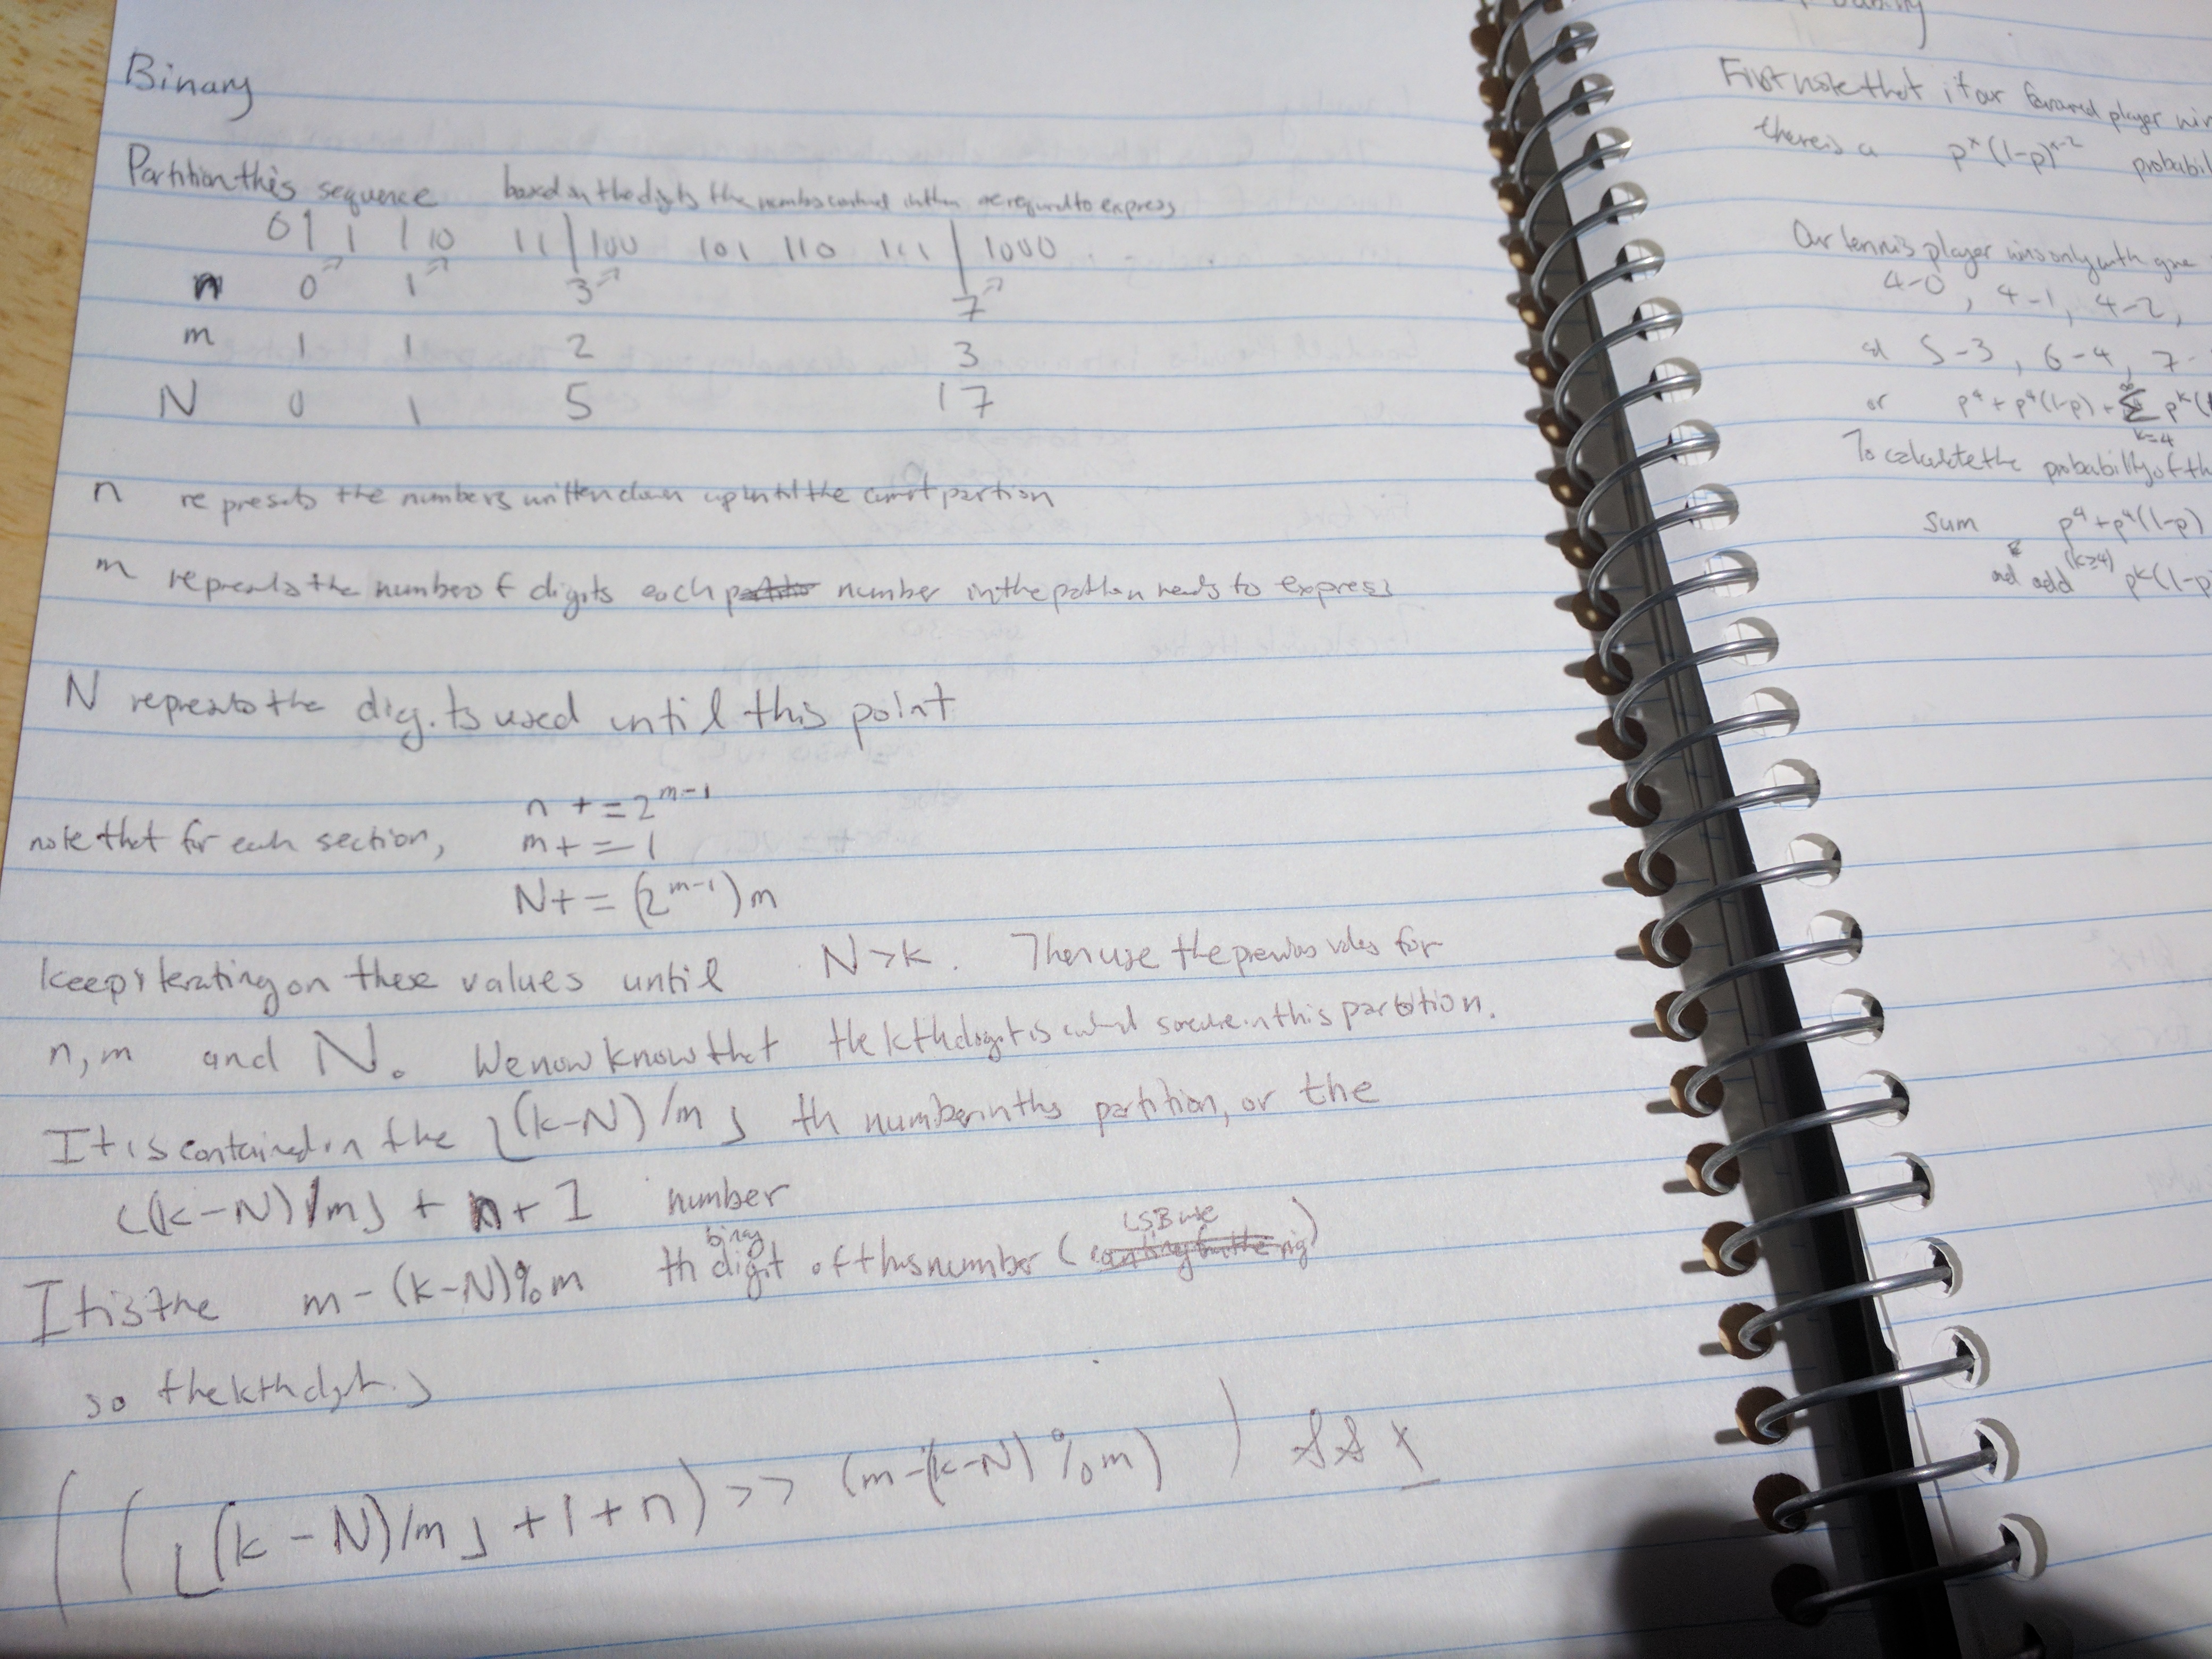 Binary
Partition this sequence based on the digits the numbers contained in them are required to express
0 | 1 | 10 11 | 100 101 110 111 | 1000
n 0 1 3 7
m 1 1 2 3
N 0 1 5 17
n represents the numbers written down up until the current partion
m represents the number of digits each number in the partition needs to express
N represents the digits used until this point
n += 2^{m-1}
note that for each section, m += 1
N += (2^{m-1})m
keep iterating on these values until N > k. Then use the previous values for
n, m and N. We now know that the kth digit is contained somewhere in this partition.
It is contained in the ⌊(k-N)/m⌋ th number in this partition, or the
⌊(k-N)/m⌋ + n + 1 number
It is the m - (k-N)%m th binary digit of this number (LSB)
so the kth digit is
((⌊(k-N)/m⌋ + 1 + n) >> (m-(k-N)%m)) && 1
First note that if our favored player
there is a p^x(1-p)^{x-2}
Our tennis player wins only with game
4-0, 4-1, 4-2,
5-3, 6-4, 7-
or p^4 + p^4(1-p) + Σ p^k(
k=4
To calculate the probability of
sum p^4 + p^4(1-p)
and add (k≥4) p^k(1-p)